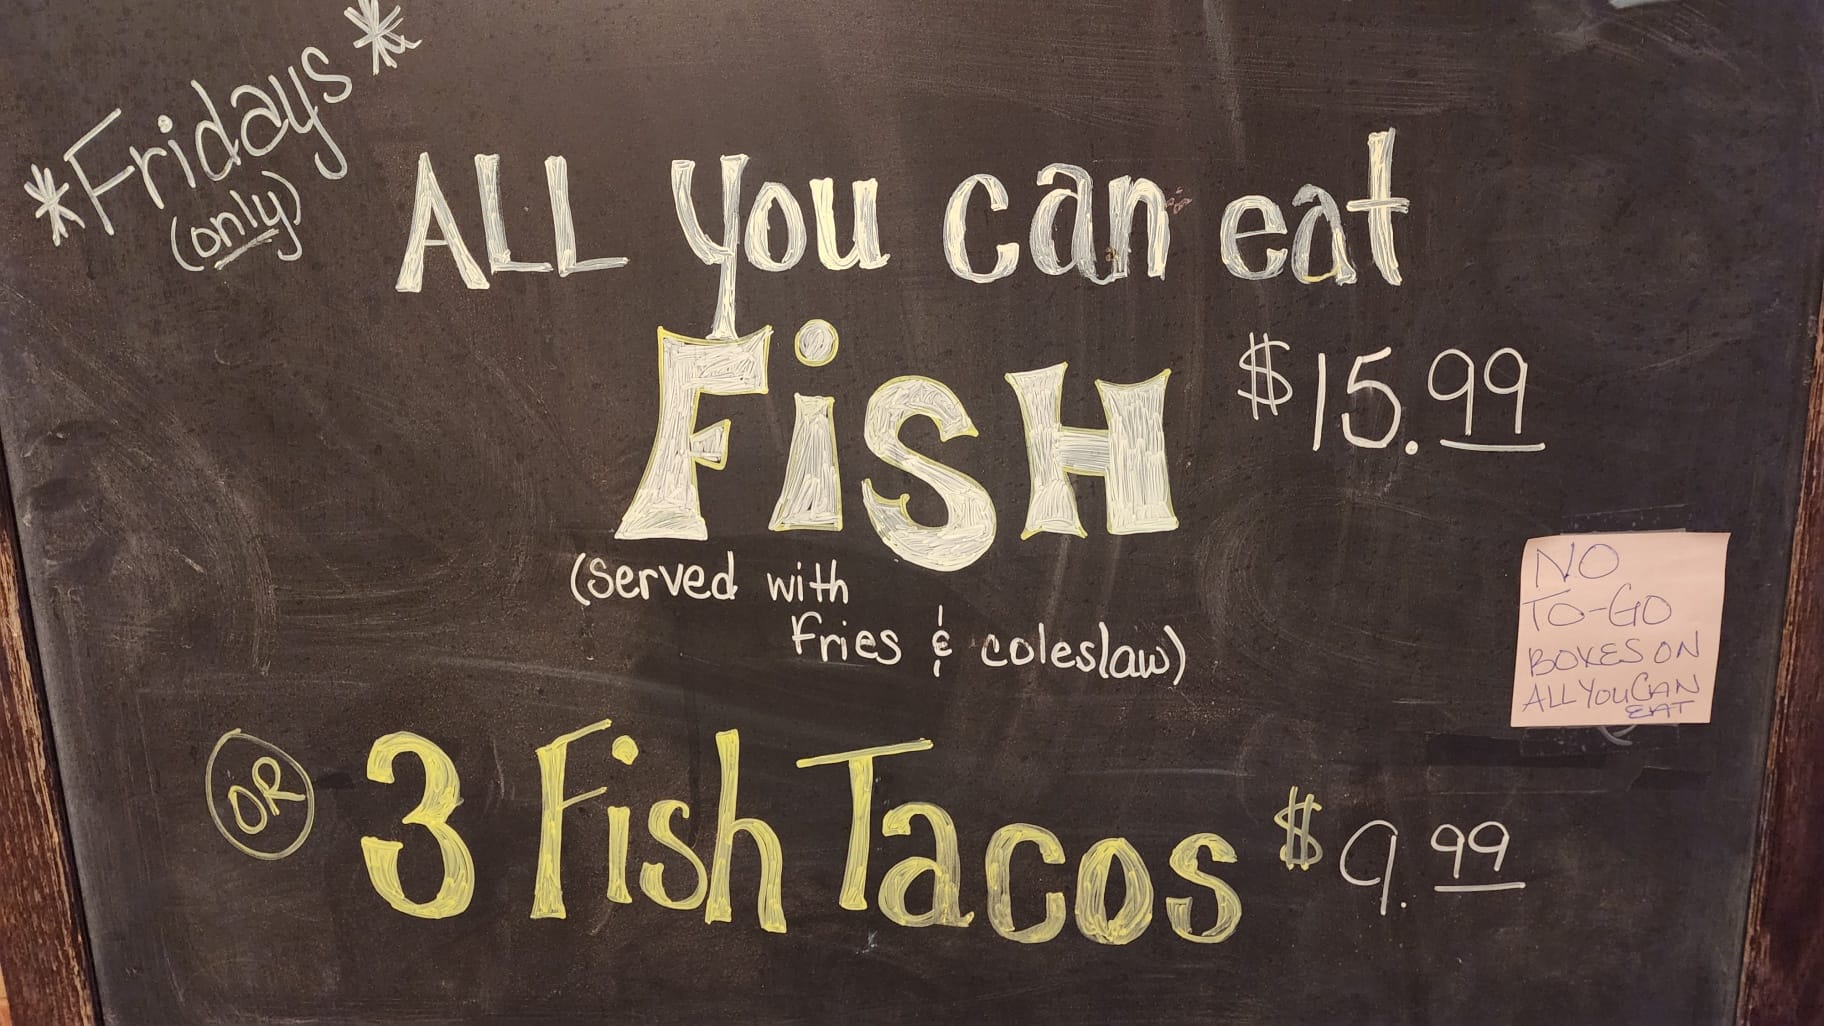 *Fridays*
(only)
ALL you can eat
FisH $15.99
(served with
fries & coleslaw)
NO
TO-GO
BOXES ON
ALL YOU CAN
EAT
OR 3 Fish Tacos $9.99